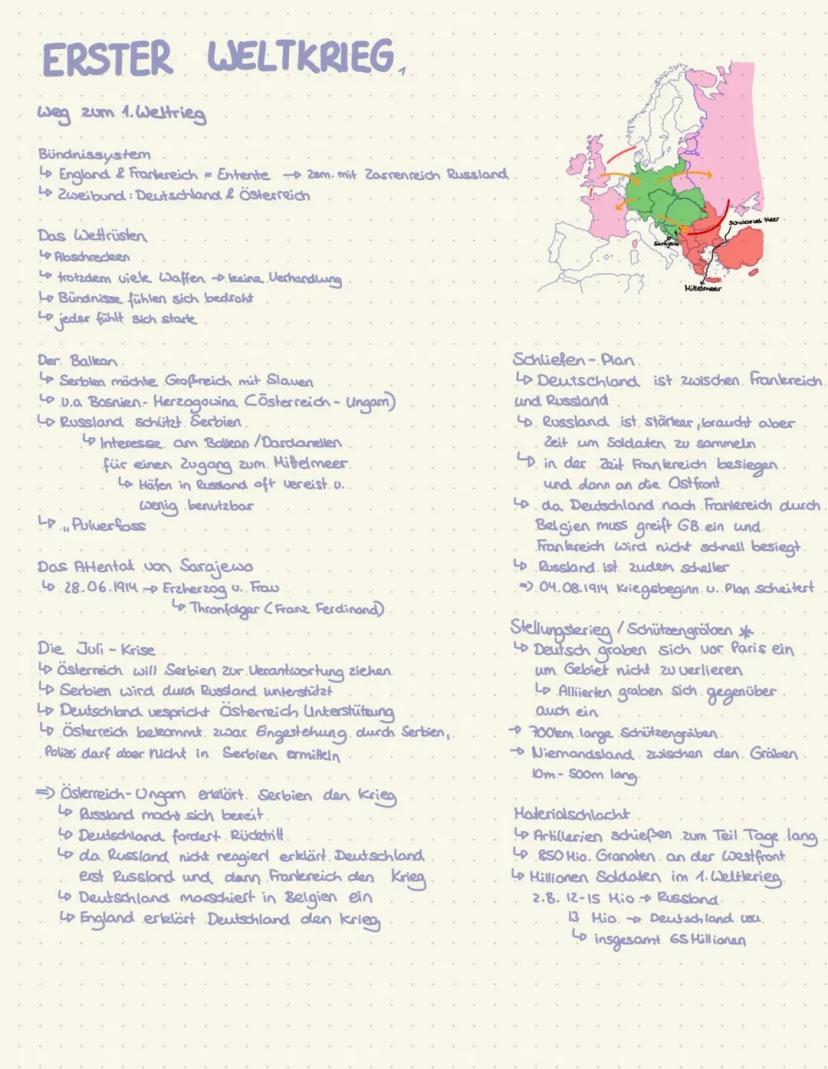 ERSTER WELTKRIEG
1
Weg zum 1. Weltrieg
Bündnissystem
↳ England & Frankreich = Entente → zsm. mit Zarrenreich Russland
↳ Zweibund: Deutschland & Österreich
Das Wettrüsten
↳ Abschrecken
↳ trotzdem viele Waffen → keine Verhandlung
↳ Bündnisse fühlen sich bedroht
↳ jeder fühlt sich stark
Der Balkan
↳ Serbien möchte Großreich mit Slaven
↳ v.a Bosnien-Herzogowina (Österreich-Ungarn)
↳ Russland schützt Serbien
↳ Interesse am Balkan / Dardanellen
für einen Zugang zum Mittelmeer
↳ Häfen in Russland oft vereist u.
wenig benutzbar
↳ „Pulverfass
Das Attentat von Sarajewo
↳ 28.06.1914 → Erzherzog u. Frau
↳ Thronfolger (Franz Ferdinand)
Die Juli-Krise
↳ Österreich will Serbien zur Verantwortung ziehen
↳ Serbien wird durch Russland unterstützt
↳ Deutschland vespricht Österreich Unterstützung
↳ Österreich bekommt zwar Engestehung durch Serbien,
Polizei darf aber nicht in Serbien ermitteln
⇒ Österreich-Ungarn erklärt Serbien den Krieg
↳ Russland macht sich bereit
↳ Deutschland fordert Rücktritt
↳ da Russland nicht reagiert erklärt Deutschland
erst Russland und dann Frankreich den Krieg
↳ Deutschland marschiert in Belgien ein
↳ England erklärt Deutschland den Krieg
Schwarzes Meer
Sarajewo
Mittelmeer
Schliefen-Plan
↳ Deutschland ist zwischen Frankreich
und Russland
↳ Russland ist stärker, braucht aber
Zeit um Soldaten zu sammeln
↳ in der Zeit Frankreich besiegen
und dann an die Ostfront
↳ da Deutschland nach Frankreich durch
Belgien muss greift GB ein und
Frankreich wird nicht schnell besiegt
↳ Russland ist zudem scheller
⇒ 04.08.1914 Kriegsbeginn u. Plan scheitert
Stellungskrieg / Schützengräben *
↳ Deutsch graben sich vor Paris ein
um Gebiet nicht zu verlieren
↳ Alliierten graben sich gegenüber
auch ein
→ 700km lange Schützengräben
→ Niemandsland zwischen den Gräben
10m - 500m lang
Materialschlacht
↳ Artillerien schießen zum Teil Tage lang
↳ 850 Mio. Granaten an der Westfront
↳ Millionen Soldaten im 1. Weltkrieg
z.B. 12-15 Mio → Russland
13 Mio. → Deutschland usw.
↳ insgesamt 65 Millionen